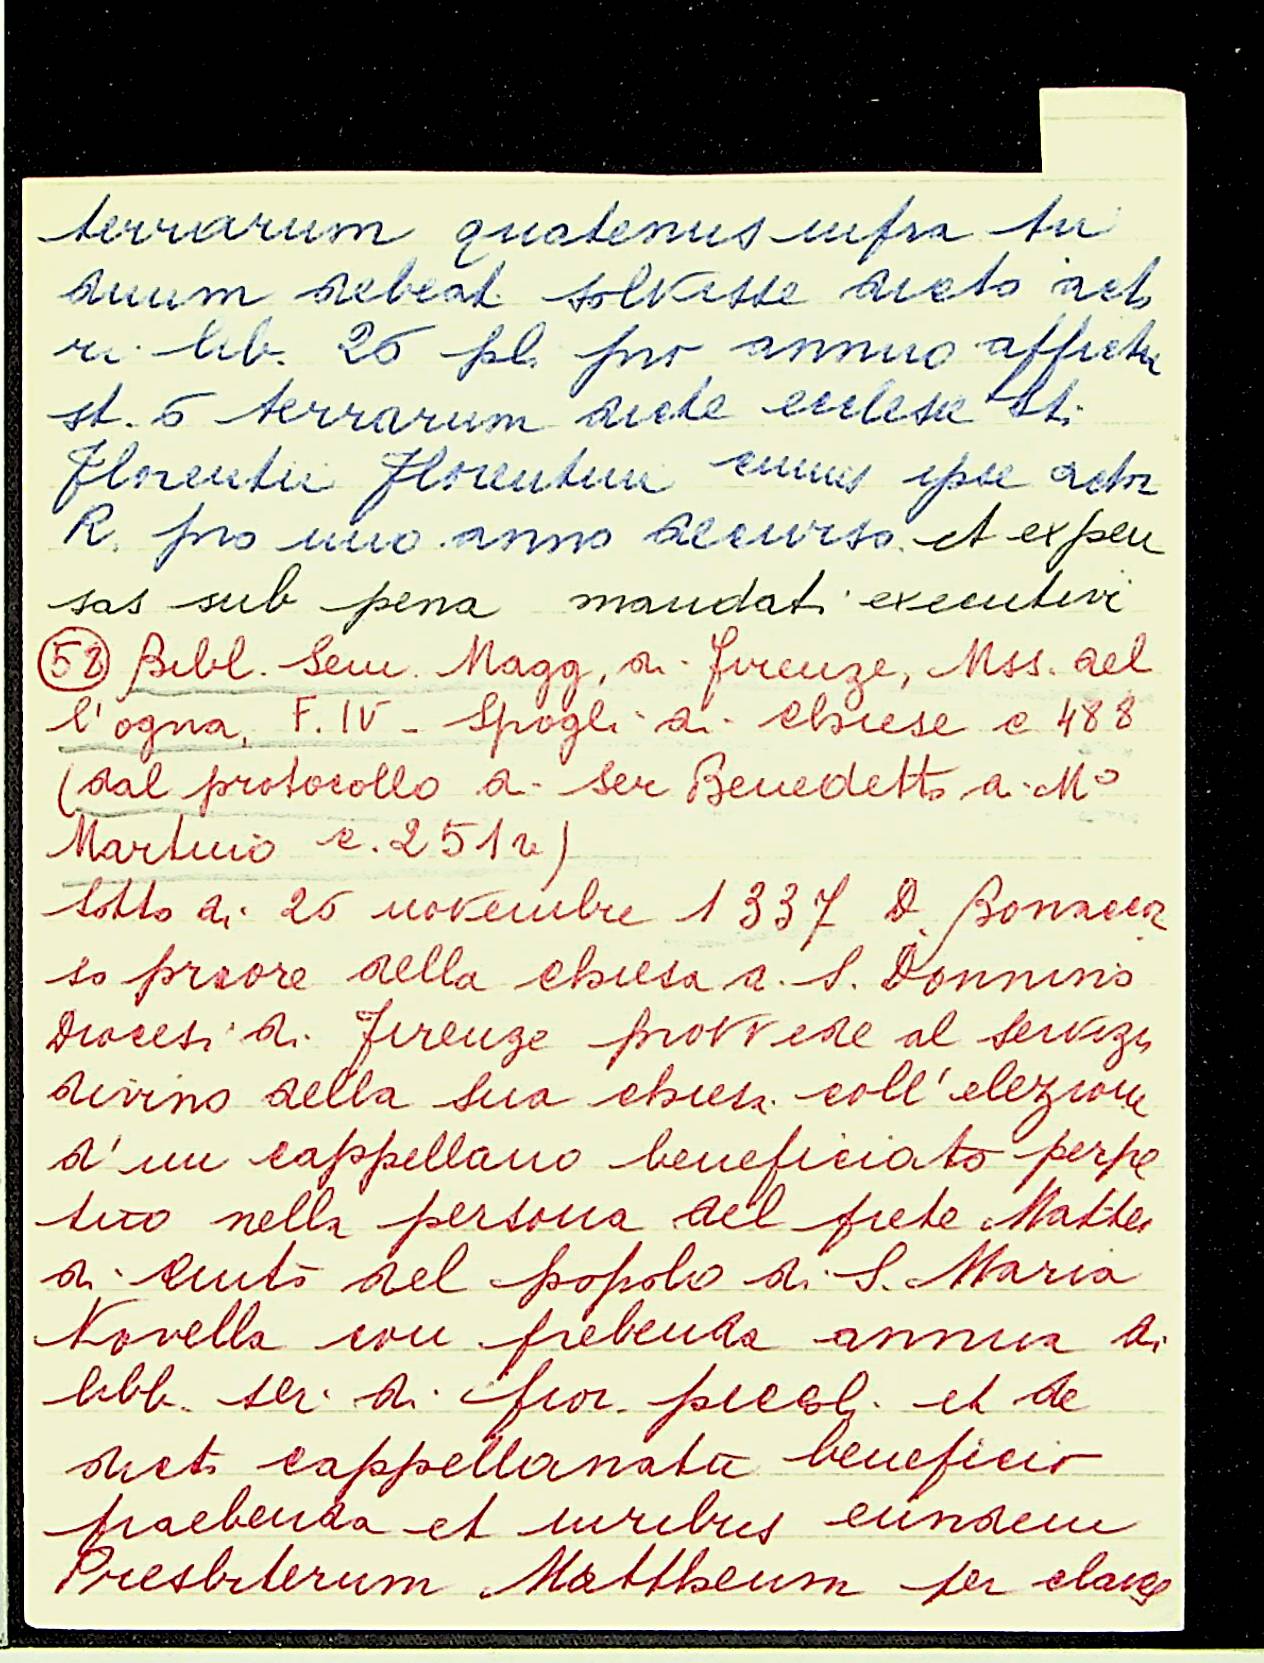 terrarum quatenus infra tri
duum debeat solvisse dicto acto
ri lib. 25 pl. pro annuo affictu
st. 5 terrarum dicte ecclesie Sti.
Florentii Florentini cuius ipse actor
R. pro uno anno decurso et expen
sas sub pena mandati executivi
(52) Bibl. Sem. Magg. di Firenze, Mss. del
l'ogna, F. IV - Spogli di chiese c 488
(dal protocollo di Ser Benedetto di Mº
Martino c. 251 v)
Sotto di 25 novembre 1337 D. Bonaccor
so priore della chiesa di S. Donnino
Diocesi di Firenze provvede al servizio
divino della sua chiesa coll'elezione
d'un cappellano beneficiato perpe
tuo nella persona del prete Matteo
di Cinto del popolo di S. Maria
Novella con prebenda annua di
libb. sei di fior. piccoli et de
dicti cappellanatu beneficio
praebenda et iuribus eundem
Presbiterum Mattheum per